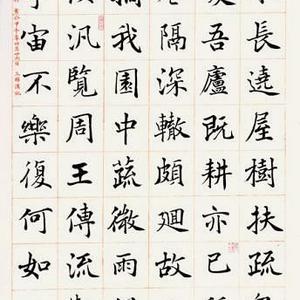 長遶屋樹扶疏
吾廬既耕亦已
隔深轍頗廻故
摘我園中蔬微雨
汎覽周王傳流
宇宙不樂復何如